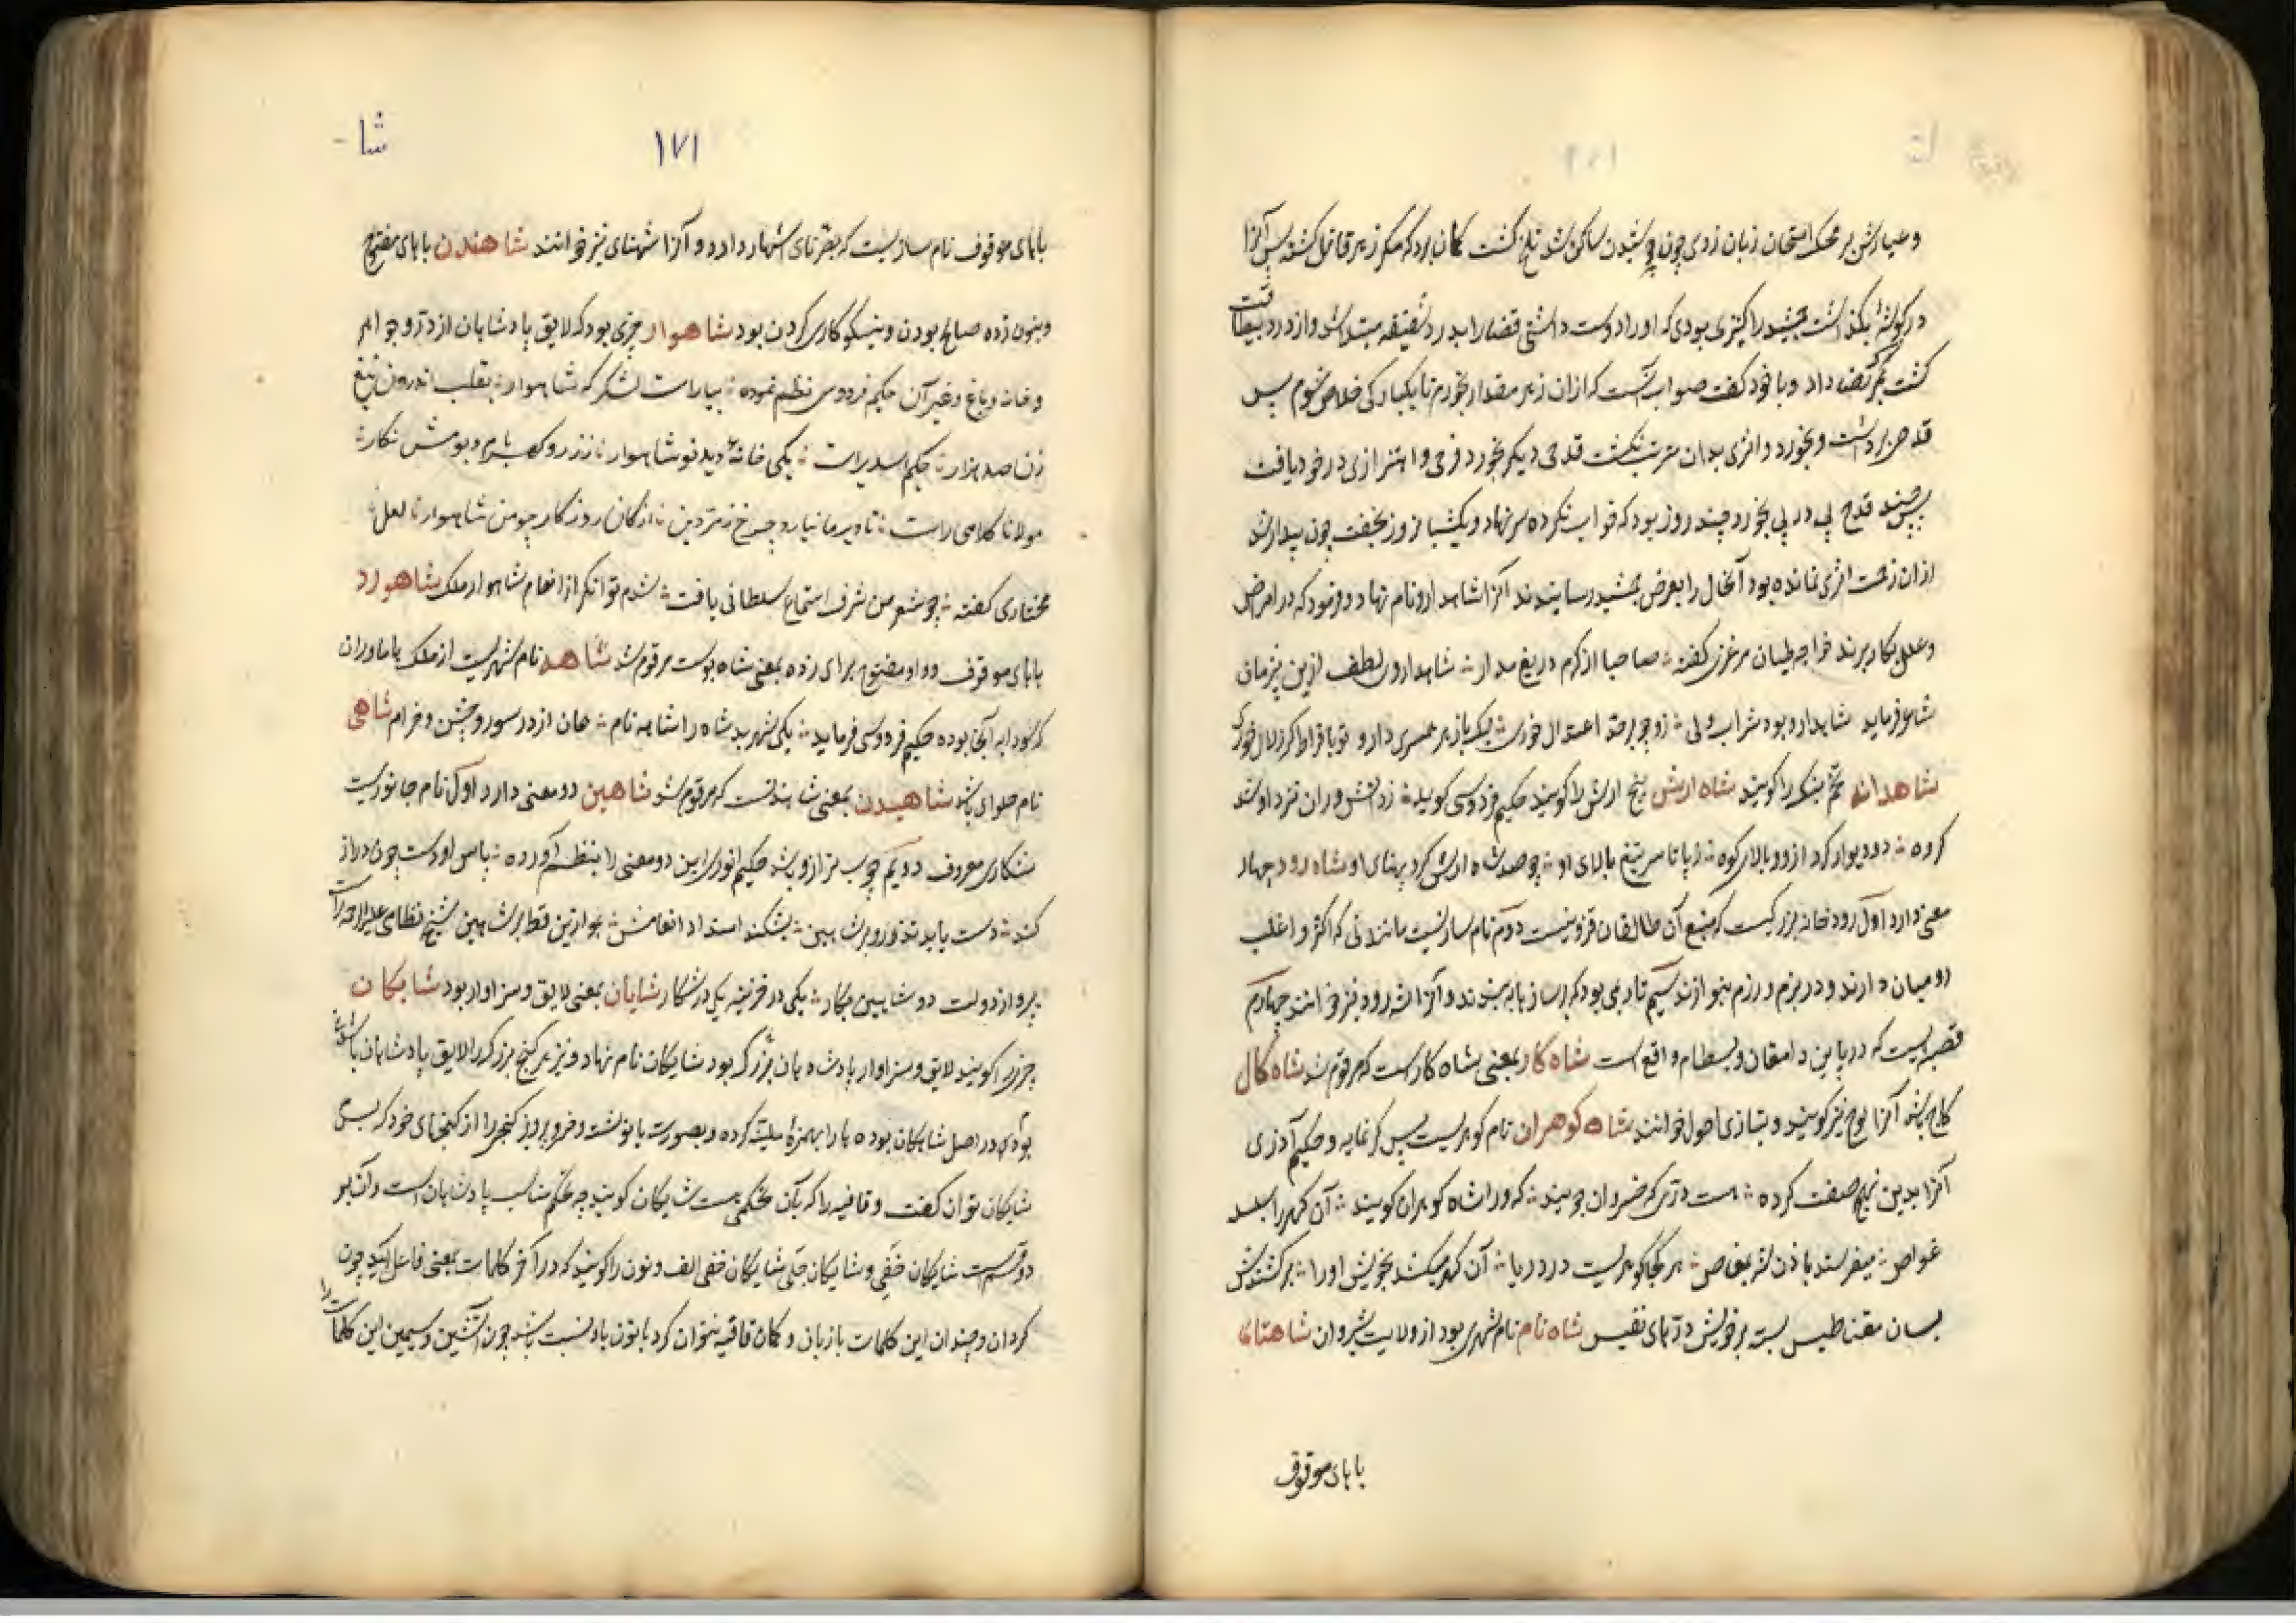 وعیارش بر محک امتحان زبان زدی چون جوشیدن ساکن شد تلخ گشت گمان برد که مگر زهر قاتل گشته پس آنرا
در گوشهٔ بگذاشت جمشید را کنیزی بودی که او را دوست داشتی قضا را بدرد شقیقه مبتلا شد و از درد بیطاقت
گشت بمرگ رضا داد و با خود گفت صواب آنست که ازان زهر مقدار بخورم تا یکبارگی خلاص شوم پس
قدحی برداشت و بخورد و اثری بدان مرتب نگشت قدحی دیگر بخورد فرحی و اهتزازی در خود یافت
چند قدح پی در پی بخورد چند روز بود که خواب نکرده سر نهاد و یکشبانروز بخفت چون بیدار شد
ازان زحمت اثری نمانده بود آنحال را بعرض جمشید رسانیدند آنرا شاهدارو نام نهاد و فرمود که در امراض
و علل بکار برند خواجه طیان مرغزی گفته صاحبا از کرم دریغ مدار شاهدارو لطف ازین
شاعر فرماید شاهدارو بود شراب ولی زو چو بر حد اعتدال خوری لیک با زهر همسری دارد تو بافراط گر زلال خوری
شاهدانه تخم بنک را گویند شاه ارش پنج ارش را گویند حکیم فردوسی گوید ز دانشوران نزد او شد
گروه دو دیوار کرد از دو بالای کوه ز پا تا سر تیغ بالای او چو صد شاه ارش کرد پهنای او شاه رود چهار
معنی دارد اول رودخانه بزرگیست که منبع آن طالقان قزوینست دوم نام سازیست مانند نی که اکثر و اغلب
رومیان دارند و در بزم و رزم بنوازند سیم تار بمی بود که بر سازها به بندند و آنرا شه رود نیز خوانند چهارم
قصبه‌ایست که در پایین دامغان و بسطام واقع است شاه کار بمعنی شاه کارست که مرقوم شد شاه کال
کاج باشد آنرا لوچ نیز گویند و بتازی احول خوانند شاه گوهران نام گوهریست بس گرنمایه و حکیم آذری
آنرا بدین نهج صفت کرده هست دری که خسروان جویند که ورا شاه گوهران گویند آن گهر را بسد
غواص میفرستد باذن شه بغواص هر کجا گوهریست در دریا آن گهر میکشد بخویش او را برکشندش
بسان مقناطیس بسته بر خویش درهای نفیس شاه نام نام شهری بود از ولایت شروان شاهنای
بابای موقوف
شا
۱۷۱
بابای موقوف نام سازیست که بقرنای اشتهار دارد و آنرا شهنای نیز خوانند شاهندن بابای مفتوح
و بنون زده صالح بودن و نیکوکاری کردن بود شاهوار چیزی بود که لایق پادشاهان از در و جواهر
و خانه و باغ و غیر آن حکیم فردوسی نظم نموده بیاراست لشکر که شاهوار بقلب اندرون تیغ
زن صد هزار حکیم اسدی راست یکی خانه دید نو شاهوار ز زر و گهر بام و بومش نگار
مولانا کلامی راست تا دیر مانیا رد چرخ زمردین از کان روزگار چو من شاهوار لعل
مختاری گفته چو شعر من شرف استماع سلطانی یافت شدم توانگر از انعام شاهوار ملک شاهورد
بابای موقوف و واو مفتوح برای زده بمعنی شاه بوست مرقوم شد شاهه نام شهریست از ملک هاماوران
که سودابه آنجا بوده حکیم فردوسی فرماید یکی شهر بد شاه را شاهه نام همان از در سور و جشن و خرام شاهی
نام حلوای باشد شاهیدن بمعنی شاهندنست که مرقوم شد شاهین دو معنی دارد اول نام جانوریست
شکاری معروف دویم چوب ترازو باشد حکیم انوری این دو معنی را بنظم آورده پاس او دست چون دراز
کند دست یابد تذرو بر شاهین بشکند استداد انعامش بموازین قطار شاهین شیخ نظامی علیه الرحمه راست
پرواز دولت دو شاهین بکار یکی در خزینه یکی در شکار شایان بمعنی لایق و سزاوار بود شایکان
چیزی را گویند لایق و سزاوار پادشاهان بزرگ بود شایکان نام نهاد و نیز هر گنج بزرگ را لایق پادشاهان باشد
بود در اصل شاهکان بوده ها را بهمزهٔ ملینه کرده و بصورت یا نوشت و خسرو پرویز گنجی را از گنجهای خود که بس
شایکان توان گفت و قافیه را که بآن تحکمیست شایکان گویند چه تحکم مناسب پادشاهان است و آن بر
دو قسمست شایکان خفی و شایکان جلی شایکان خفی الف و نون را گویند که در آخر کلمات بمعنی فاعل آید چون
گردان و چندان این کلمات با زبان و کمان قافیه نتوان کرد یا نون یاء نسبت باشد چون آتشین و سیمین این کلمات را